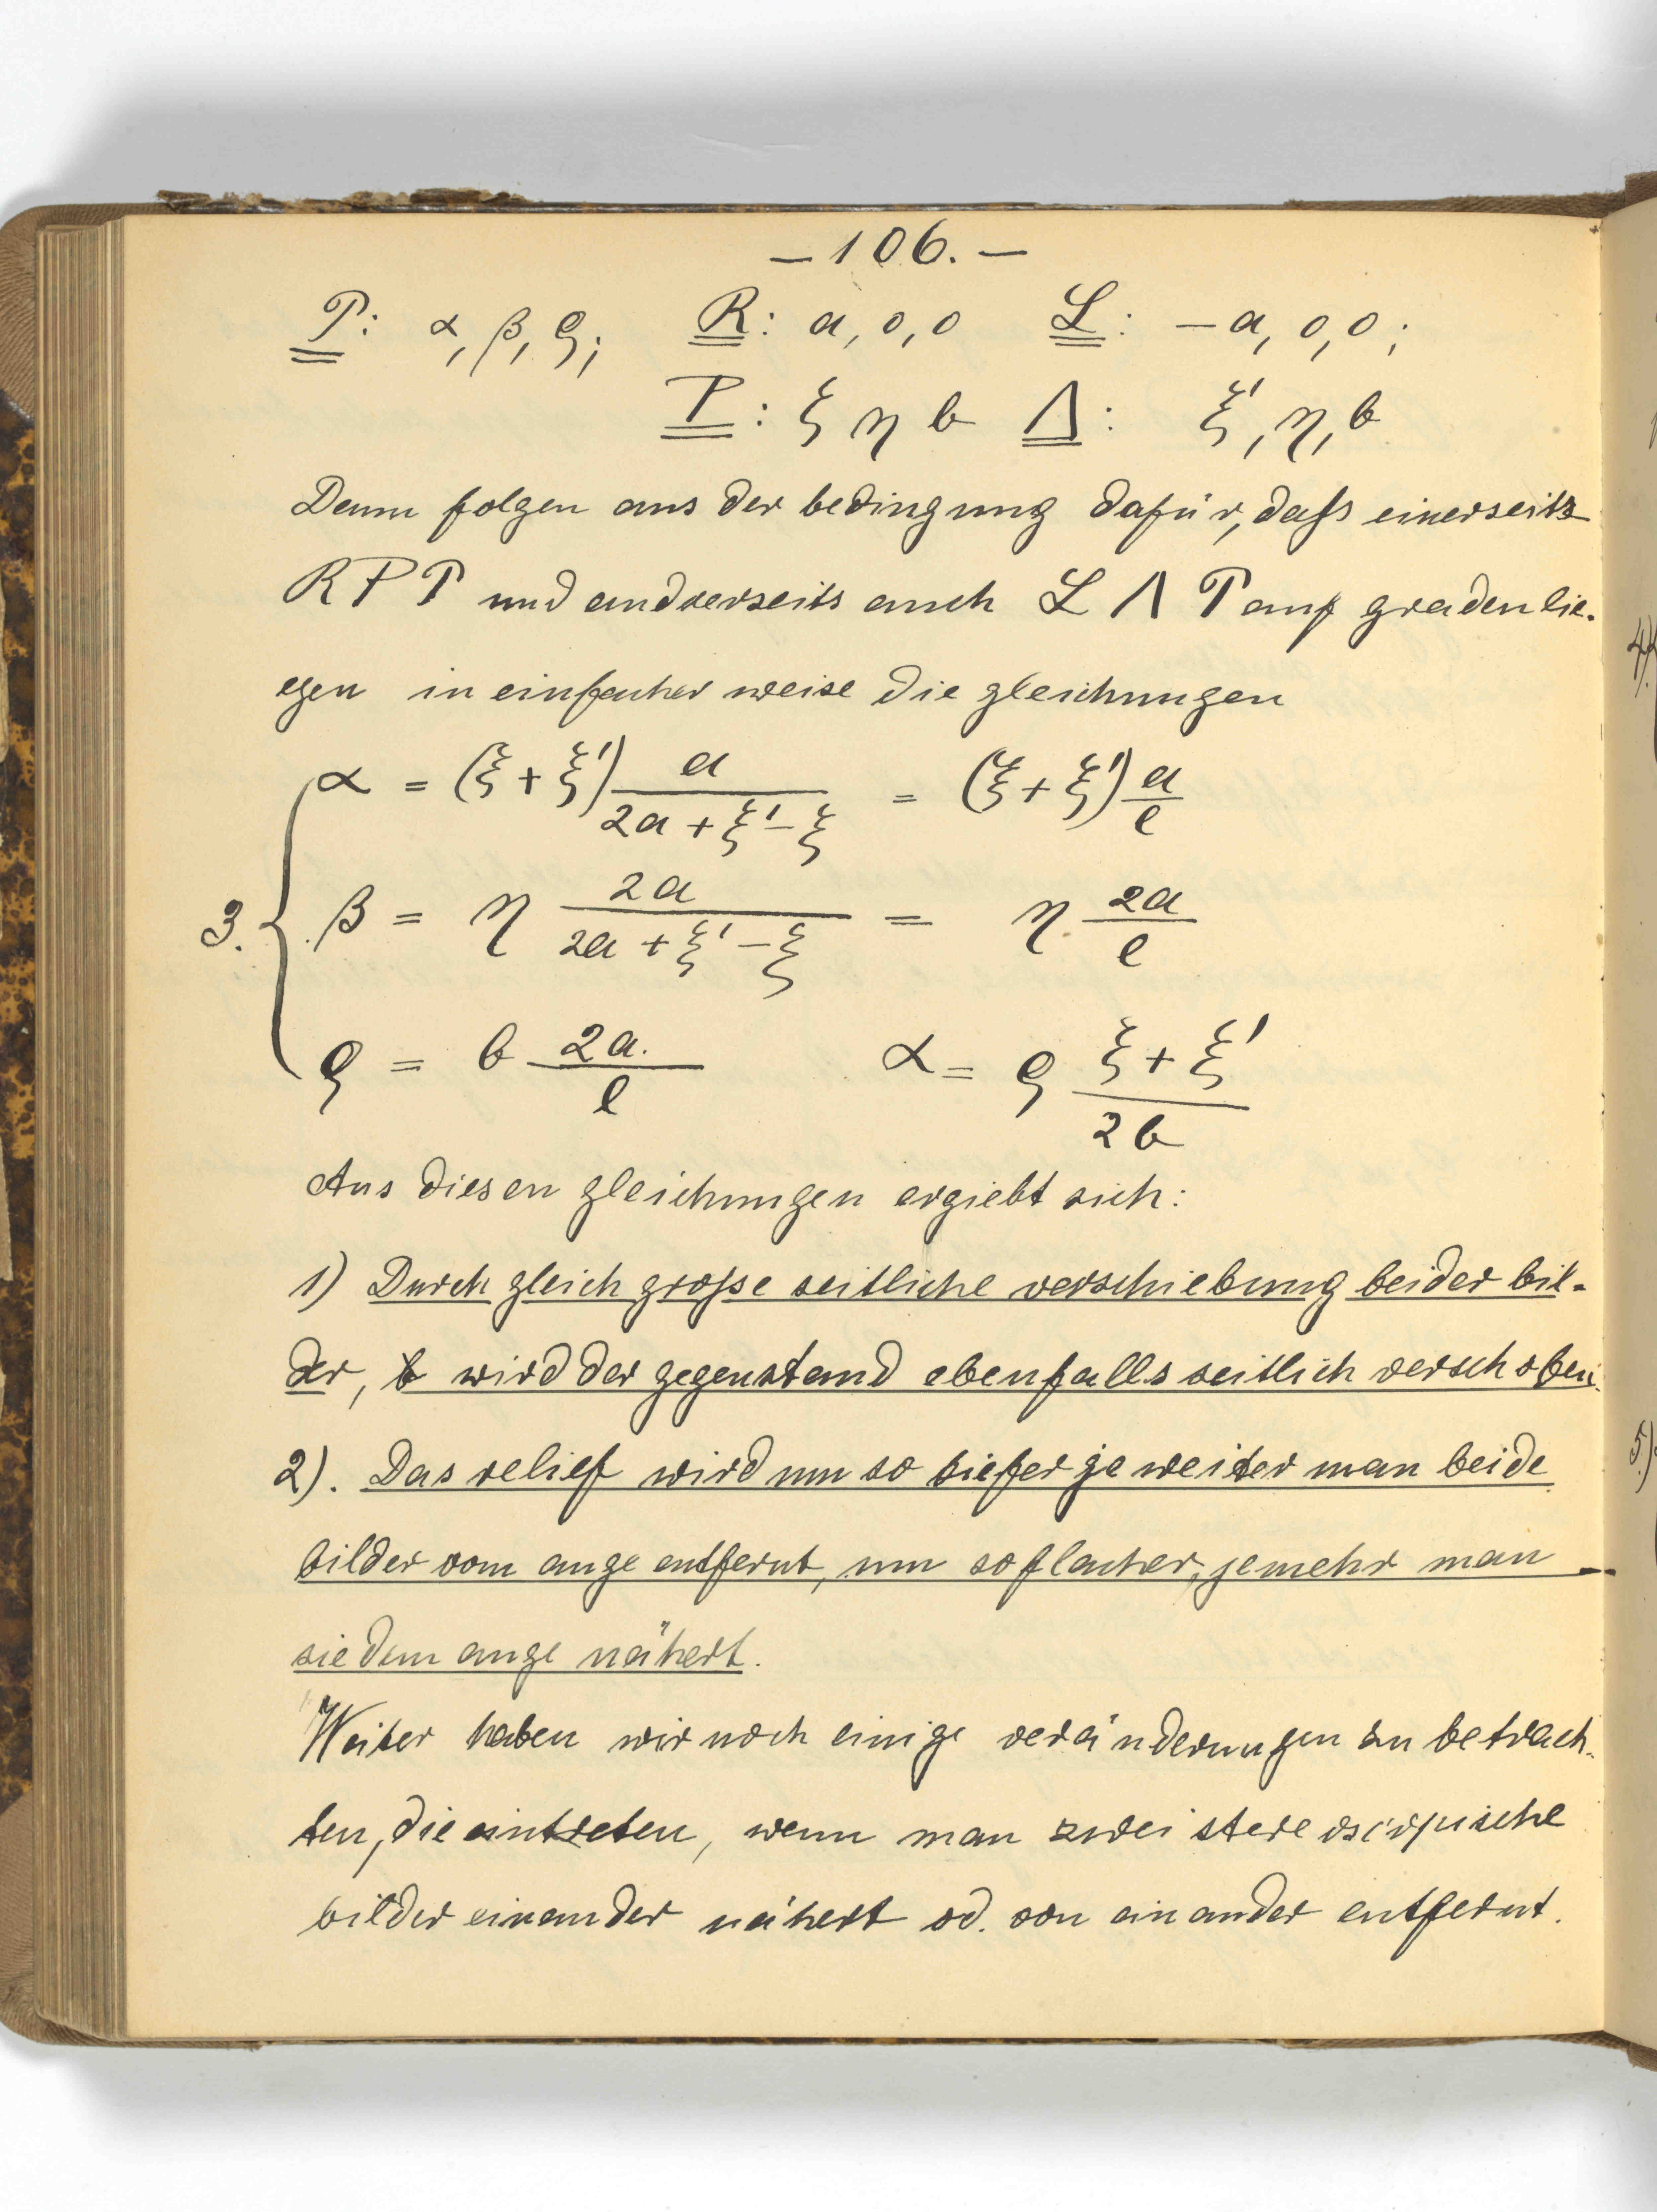 — 106. —
P: α, β, ϱ; R: a, 0, 0 L: – a, 0, 0;
P: ξ η b Λ: ξ', η, b
Denn folgen aus der bedingung dafür, daſs einerseits
R P P und andrerseits auch L Λ P auf graden lie-
gen in einfacher weise die gleichungen
α = (ξ + ξ') a / (2a + ξ' – ξ) = (ξ + ξ') a / e
3. { β = η 2a / (2a + ξ' – ξ) = η 2a / e
ϱ = b 2a / e α = ϱ (ξ + ξ') / 2b
Aus diesen gleichungen ergiebt sich:
1) Durch gleich groſse seitliche verschiebung beider bil-
der, wird der gegenstand ebenfalls seitlich verschoben.
2). Das relief wird um so tiefer je weiter man beide
bilder vom auge entfernt, um so flacher, jemehr man
sie dem auge nähert.
Weiter haben wir noch einige veränderungen zu betrach-
ten, die eintreten, wenn man zwei stereoscopische
bilder einander nähert od. von einander entfernt.
4)
5)